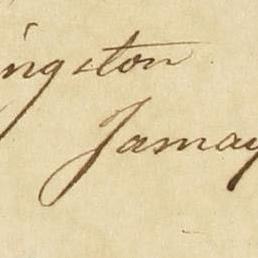 ingston
Jamay